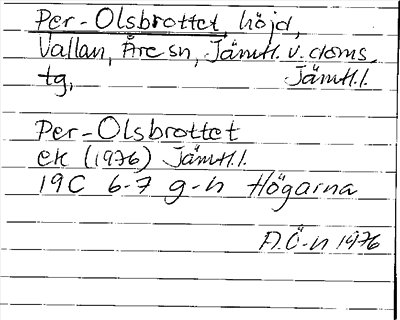 Per-Olsbrottet, höjd,
Vallan, Åre sn, Jämtl. v. doms.
tg, Jämtl.l.
Per-Olsbrottet
ek (1976) Jämtl.l.
19C 6-7 g-h Högarna
A.Ö-n 1976